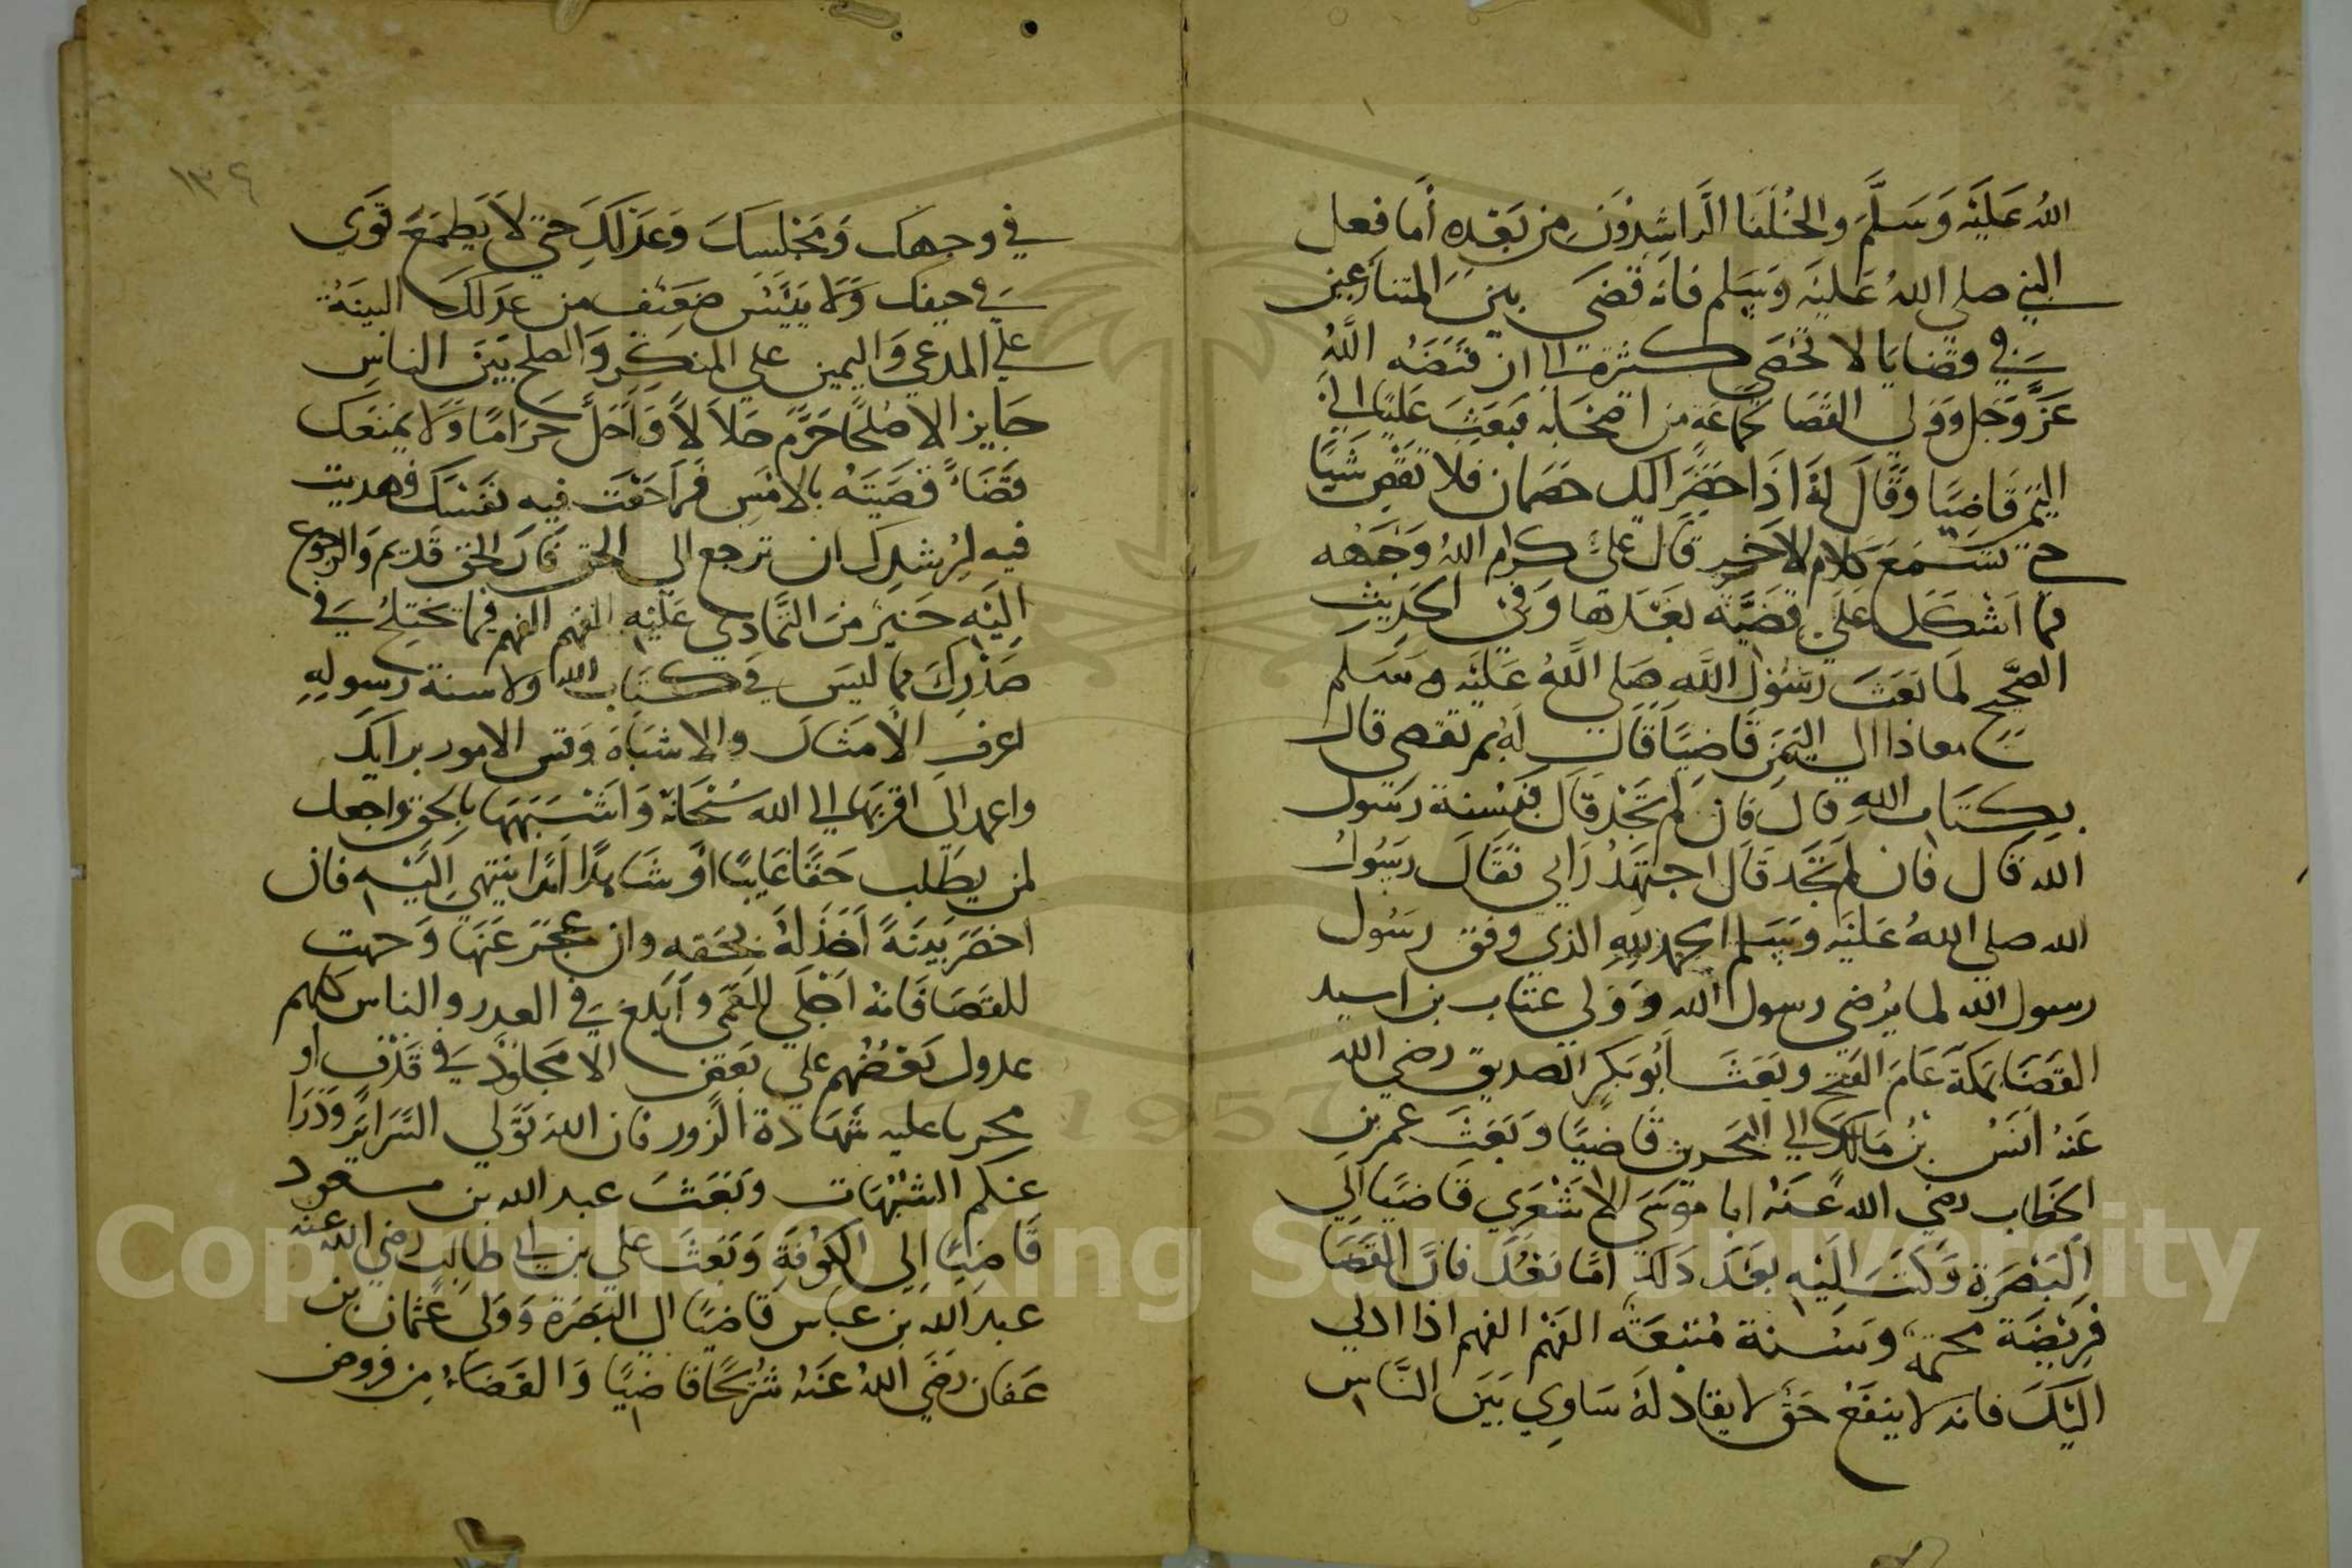 الله عَليْه وَسَلَّمَ والخُلَفَا الرَّاشِدُونَ مِن بَعْدِهِ أَمَا فعل
النبي صلى اللهُ عَليْه وَسَلم فانه قَضَى بين المتنازعين
في قضايا لا تحصى كثرة الى ان قبَضَهُ اللهُ
عَزَّ وَجَل وَوَلي القضَا لجماعَة من اصْحَابه فبَعَثَ عَليّا الى
اليمن قاضِيًا وَقَالَ لهُ اذَا حَضَرَ اليك خصمان فلا تَقْضِ شَيًا
حتى تسْمَعَ كلام الاخر قال عليّ كرم اللهُ وَجهه
فما اشْكَل عَلَيّ قضيَّة بَعْدها وَفي الحَدِيثِ
الصَّحيح لما بَعَثَ رسُول اللهِ صَلى اللَّهُ عَليْه وسَلم
معاذا الى اليَمَن قَاضِيًا قَال لهُ بم تقضي قال
بكتاب اللهِ قال فَان لم تَجْد قَال فبسُنة رسُول
الله قال فان لم تجَد قال اجتهدُ رَايي فقَال رسُولُ
الله صلى اللهُ عَليْه وَسَلم الحمد للهِ الذي وفق رسُول
رسول الله لما يُرضي رسول الله وَوَلي عتاب بن اسيد
القضَا بمكة عَامَ الفتح وبَعَثَ أبُو بَكر الصديق رضي الله
عَنهُ أنسُ بنُ مَالك الى البحرين قاضيًا وبَعَثَ عمر بن
الخطاب رضي الله عَنهُ ابا مُوسَى الاشْعَري قَاضيًا الي
البَصْرَة وَكَتبَ اليْه بعَد ذلك امّا بَعْدُ فانَّ القَضَا
فريْضَة محكمة وسُنة مُتبعَة الفَهْم الفهم اذا ادلي
اليْكَ فانه لا ينفَعُ حَق لا نفاد لهُ سَاوِي بَيَن النَّاس
١٣٤
في وجهك وَمَجْلسِكَ وَعَدْلكَ حتى لاَ يَطمَعَ قَوي
في حيفك وَلا يَيْئَسَ ضَعِيْف من عَدلكَ البينَةُ
على المدعي وَاليمين على المنكر وَالصلح بَيْنَ الناس
جَايز الا صُلحًا حَرَّمَ حَلاَلاً وَأحَلَّ حَرَامًا وَلا يمنَعك
قَضَاءً قَضَيْتَهُ بالامْسِ فَرَاجَعْتَ فيه نفسَك فهديت
فيه لرُشدِك ان ترجع الى الحق فَان الحق قَديم وَالرجوع
اليْه خَيْر منَ التَّمَادي عَليْه الفهم الفهم فيما يختلجُ في
صَدْرِكَ مما ليسَ في كتاب الله ولا سنة رسولهِ
اعرفِ الأمثَال والاشبَاهَ وَقس الامور برايك
واعمد الى اقربها الى الله سُبْحَانهُ وَاشْبهَهَا بالحق واجعل
لمن يطلب حَقًّا غَايبًا أوْ شَاهدًا أمَدًا ينتهي اليْه فان
احضَرَ بَينَةً أخَذَ لهُ بحَقه وان عَجَزَ عَنهَا وَجهت
للقضَا فانهُ اجْلَى للعَمَى وأبلغ في العذر والناس كلهم
عدول بَعْضُهم على بَعض الا مجلودًا في قَذْف او
مجربا عليه شَهَادة الزور فان الله تَوَلى السَّرَاير وَدَرَا
عنكم الشُّبْهَات وبَعَثَ عبد الله بن مسعود
قَاضِيًا إلى الكوفَة وَبَعَثَ علي بن ابي طالب رضي الله عنه
عبد الله بن عباس قاضيًا الى البَصَرَة وَوَلي عُثمان بن
عَفان رَضيَ اللهُ عَنهُ شُرَيْحًا قَاضيًا وَالقَضَاءُ من فروض
Copyright © King Saud University
1957